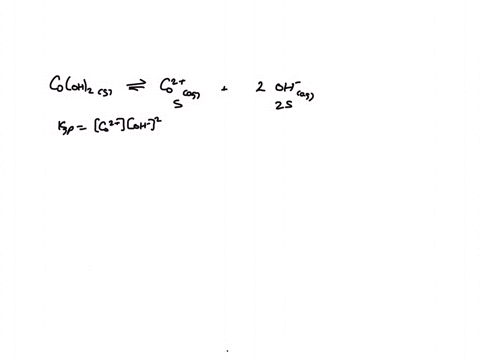 Co(OH)₂ (s) ⇌ Co²⁺ (aq) + 2 OH⁻ (aq)
S 2S
Ksp = [Co²⁺][OH⁻]²